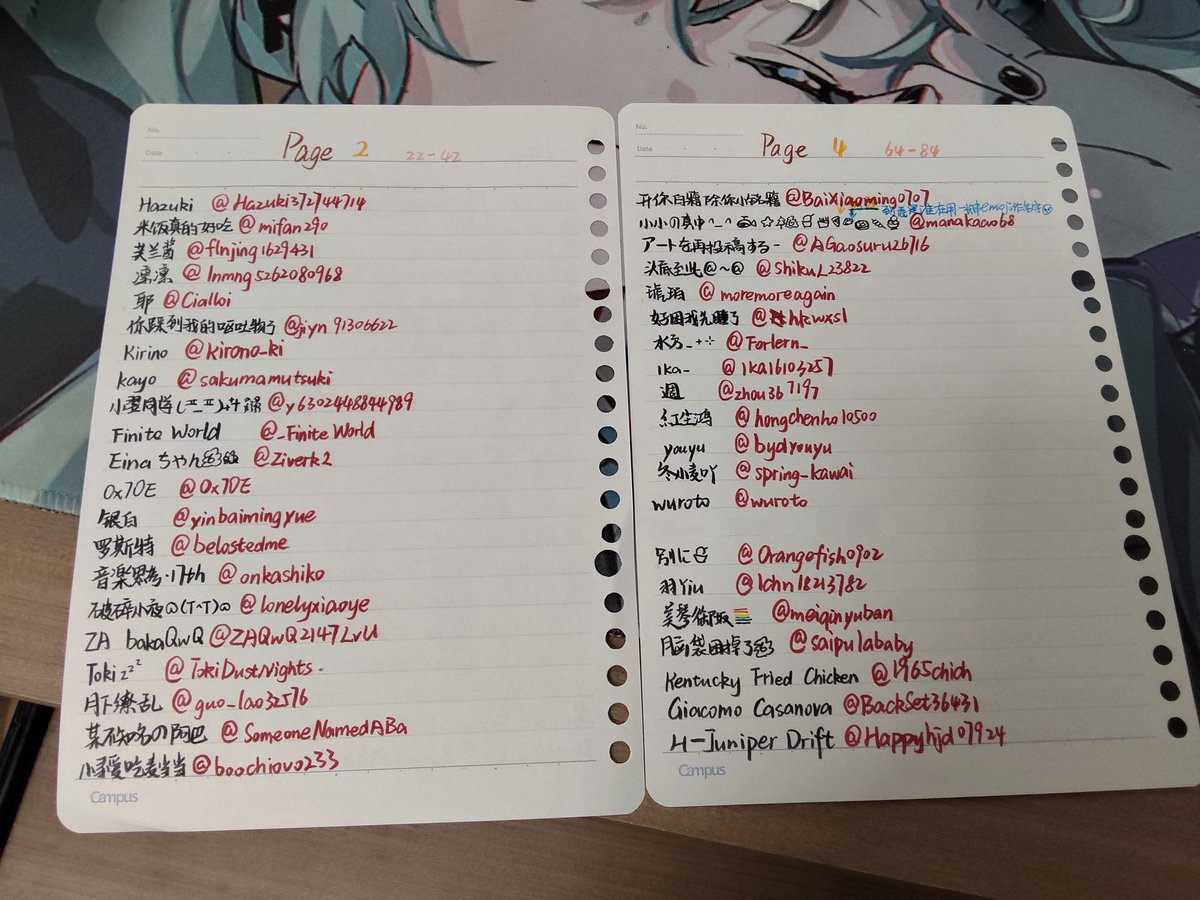 No.
Date
Page 2 22-42
Hazuki @Hazuki372744714
米饭真的好吃 @mifan290
芙兰酱 @flnjing1629431
凛凛 @lnmng5262080968
耶 @Cialloi
你踩到我的呕吐物了 @jiyn91306622
Kirino @kirono_ki
kayo @sakumamutsuki
@y6302448844989
Finite World @_Finite World
Einaちゃん @Ziverk2
0x7DE @0x7DE
银白 @yinbaimingyue
罗斯特 @belostedme
音楽思考·17th @onkashiko
破碎小夜 @lonelyxiaoye
ZA bakaQwQ @ZAQwQ2147LvU
Toki zzz @TokiDustNights
月下缭乱 @guo_lao32576
某不知名の阿巴 @SomeoneNamedABa
爱吃麦当当 @boochiovo233
Campus
No.
Date
Page 4 64-84
@BaiXiaoming0707
小小の真中 ^_^ @manakacao68
アートを再投稿する- @AGaosuru26716
头底至此@~@ @ShikuL23822
琥珀 @moremoreagain
好困我先睡了 @hkwxsl
@Forlern_
ika- @1ka16103257
週 @zhou367197
紅尘鸿 @hongchenho10500
youyu @bydyouyu
冬小麦吖 @spring_kawai
wuroto @wuroto
別に @Orangefish0902
羽Yiu @lchn18213782
美琴御坂 @meiqinyuban
脑袋困掉了 @saipulababy
Kentucky Fried Chicken @1965chich
Giacomo Casanova @BackSet36431
H-Juniper Drift @Happyhjd07924
Campus